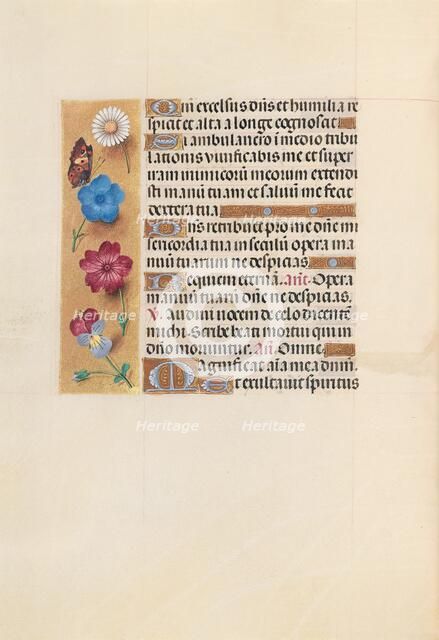 Qm̄ excelsus dn̄s et humilia re
spicit et alta a longe cognoscit
Si ambulauero in medio tribu
lationis viuificabis me et super
iram inimicorū meorum extendi
sti manū tuam et saluū me fecit
dextera tua
Dn̄s retribuet pro me dn̄e mi
sericordia tua in seculū opera ma
nuū tuarum ne despicias
Requiem eternā. Ant̄. Opera
manuū tuarū dn̄e ne despicias.
V. Audiui vocem de celo dicentē
michi. Scribe beati mortui qui in
dn̄o moriuntur. An̄. Omne
Magnificat aīa mea dnm̄.
Et exultauit spiritus
Heritage
Heritage
Heritage
Heritage
Heritage
Heritage